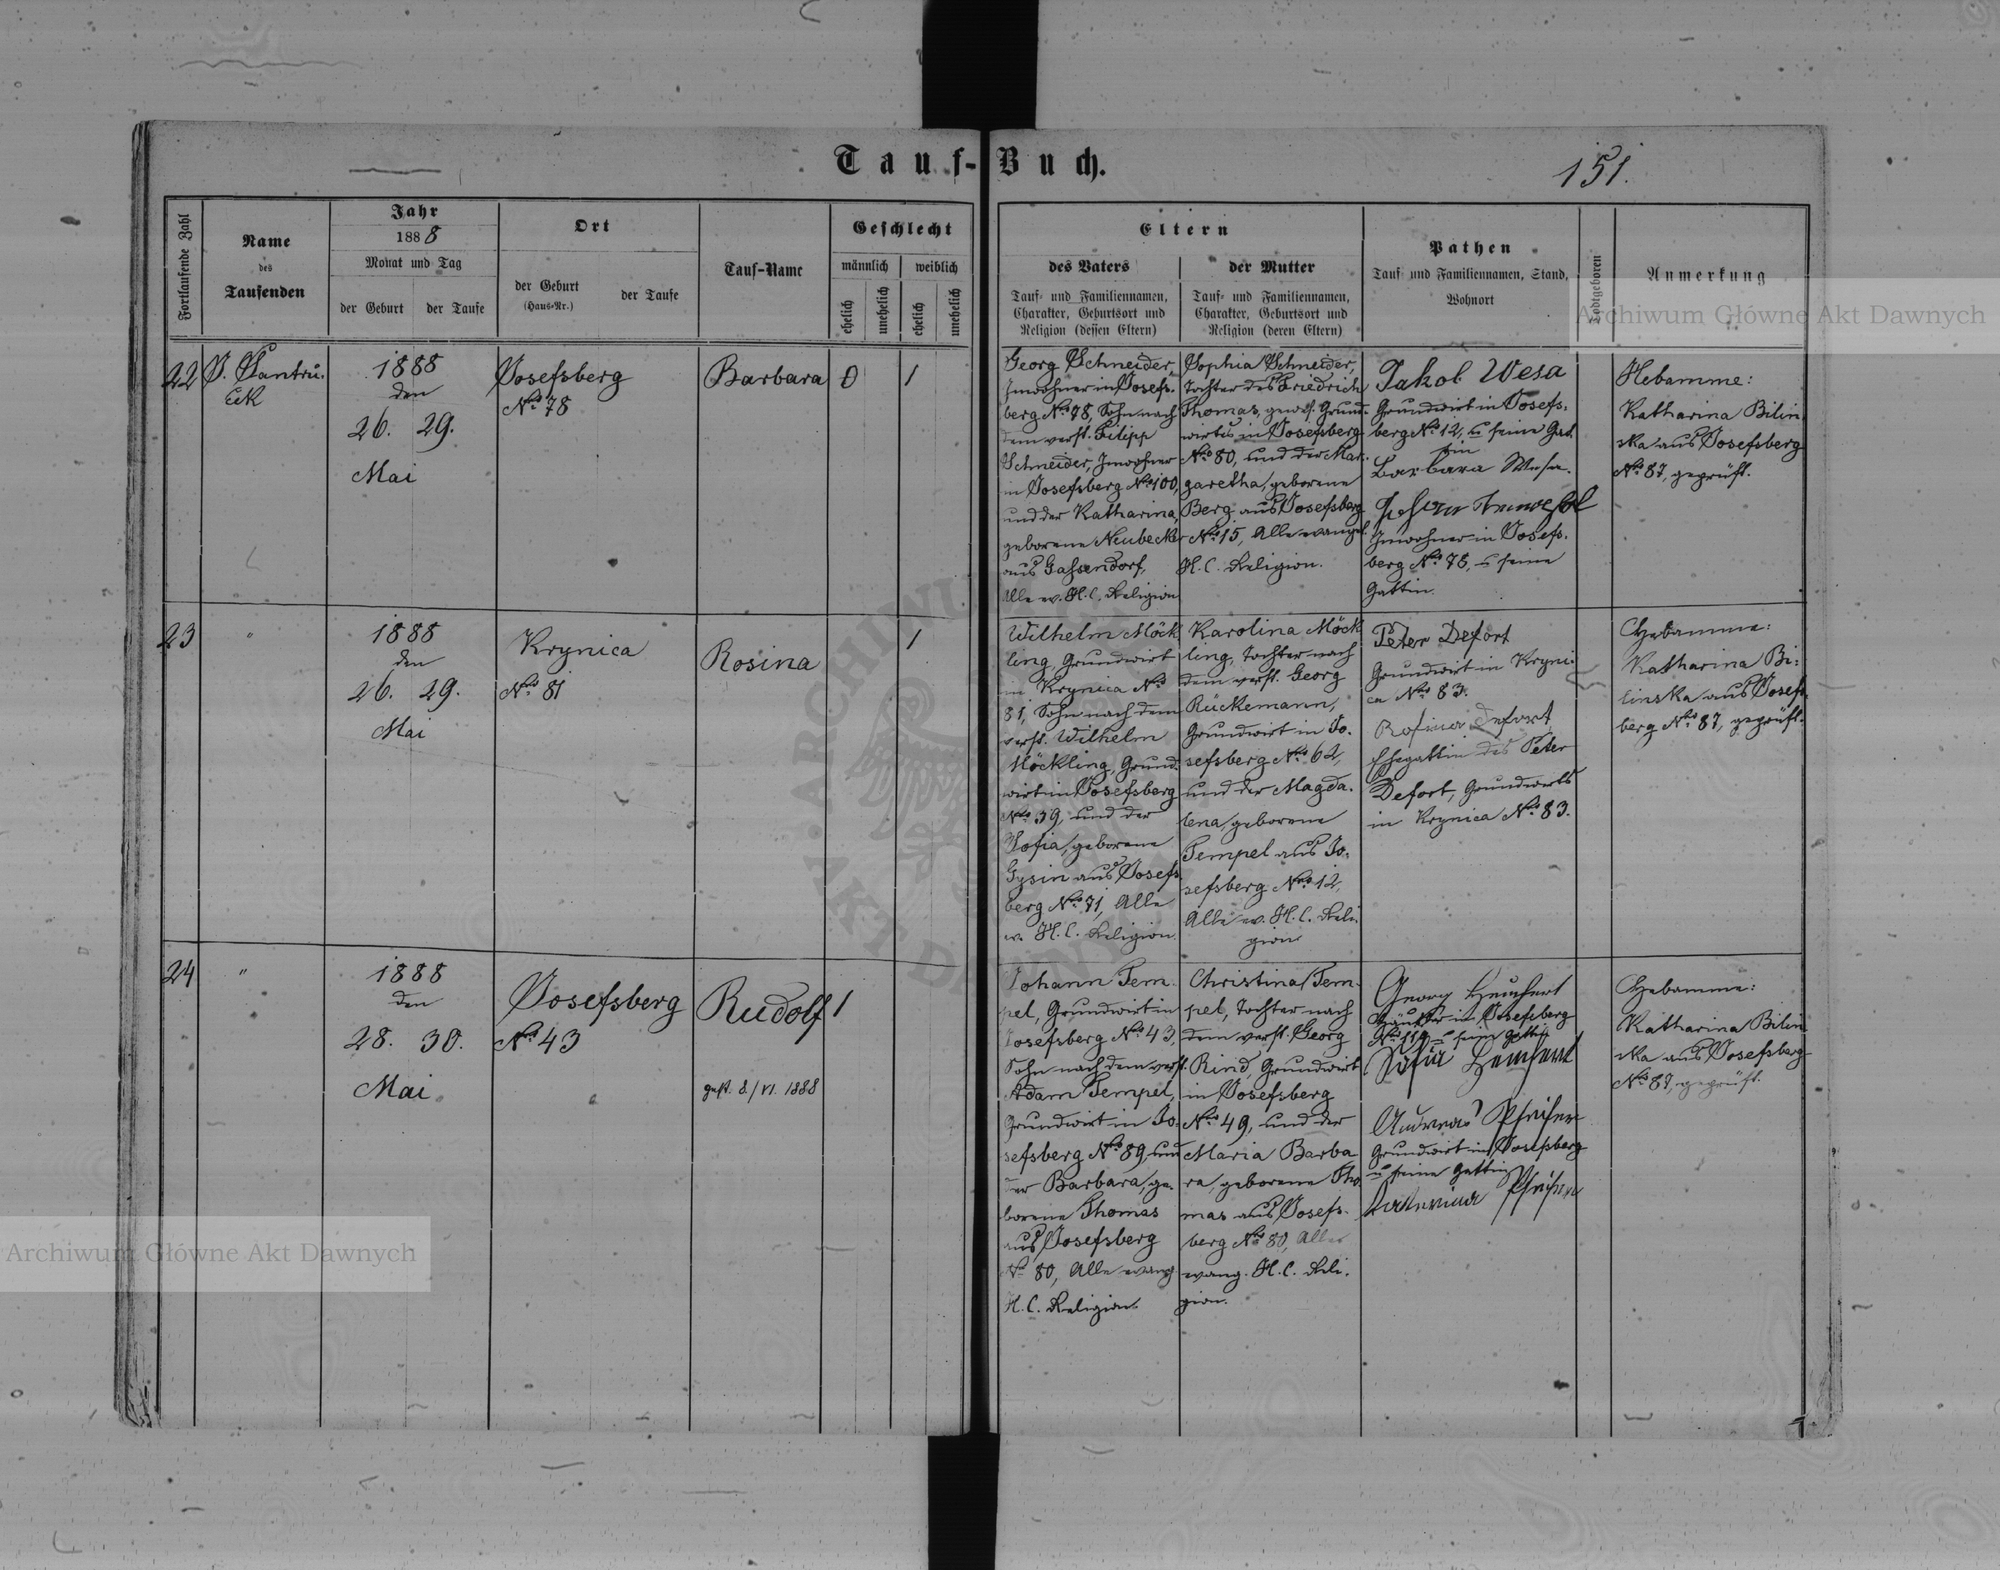 Tauf-Buch.
151.
Fortlaufende Zahl
Name
des
Taufenden
Jahr
1888
Monat und Tag
der Geburt
der Taufe
Ort
der Geburt
(Haus-Nr.)
der Taufe
Tauf-Name
Geschlecht
männlich
weiblich
ehelich
unehelich
ehelich
unehelich
Eltern
des Vaters
Tauf- und Familiennamen,
Charakter, Geburtsort und
Religion (dessen Eltern)
der Mutter
Tauf- und Familiennamen,
Charakter, Geburtsort und
Religion (deren Eltern)
Pathen
Tauf und Familiennamen, Stand,
Wohnort
Todtgeboren
Anmerkung
Archiwum Główne Akt Dawnych
22
1888
den
26. 29.
Mai
Josefsberg
No 78
Barbara
0
1
Georg Schneider,
Inwohner in Josefs-
berg No 78, Sohn nach
dem verst. Filipp
Schneider, Inwohner
in Josefsberg No 100,
und der Katharina,
geborene Neubecker
aus Gassendorf,
Alle ev. H.C. Religion
Sophia Schneider,
Tochter des Friedrich
Thomas, gewes. Grund-
wirts in Josefsberg
No 80, und der Mar-
garetha, geborene
Berg aus Josefsberg
No 15, Alle evangel.
H.C. Religion.
Jakob Wesa
Grundwirt in Josefs-
berg No 12, u seine Gat-
tin
Barbara Wesa.
Johann
Inwohner in Josefs-
berg No 78, u seine
Gattin.
Hebamme:
Katharina Bilin-
ska aus Josefsberg
No 87, geprüft.
23
"
1888
den
26. 29.
Mai
Krynica
No 81
Rosina
1
Wilhelm Möck-
ling, Grundwirt
in Krynica No
81, Sohn nach dem
verst. Wilhelm
Möckling, Grund-
wirt in Josefsberg
No 39, und der
Sofia, geborene
Gysin aus Josefs-
berg No 71, Alle
ev. H.C. Religion
Karolina Möck-
ling, Tochter nach
dem verst. Georg
Rückemann,
Grundwirt in Jo-
sefsberg No 62,
und der Magda-
lena, geborene
Tempel aus Jo-
sefsberg No 12,
Alle ev. H.C. Reli-
gion
Peter Defort
Grundwirt in Kryni-
ca No 83.
Rosina Defort
Ehegattin des Peter
Defort, Grundwirts
in Krynica No 83.
Hebamme:
Katharina Bi-
linska aus Josefs-
berg No 87, geprüft.
24
"
1888
den
28. 30.
Mai
Josefsberg
No 43
Rudolf
gest. 8./VI. 1888
1
Johann Tem-
pel, Grundwirt in
Josefsberg No 43,
Sohn nach dem verst.
Adam Tempel,
Grundwirt in Jo-
sefsberg No 89, und
der Barbara, ge-
borene Thomas
aus Josefsberg
No 80, Alle evang.
H.C. Religion.
Christina Tem-
pel, Tochter nach
dem verst. Georg
Rind, Grundwirt
in Josefsberg
No 49, und der
Maria Barba-
ra, geborene Tho-
mas aus Josefs-
berg No 80, Alle
evang. H.C. Reli-
gion.
Georg Heuchert
in Josefsberg
No 119 u seine Gattin
Sofia Heuchert
Andreas Pfeifer
Grundwirt in Josefsberg
u seine Gattin
Katerina Pfeifer
Hebamme:
Katharina Bilin-
ska aus Josefsberg
No 87, geprüft.
Archiwum Główne Akt Dawnych